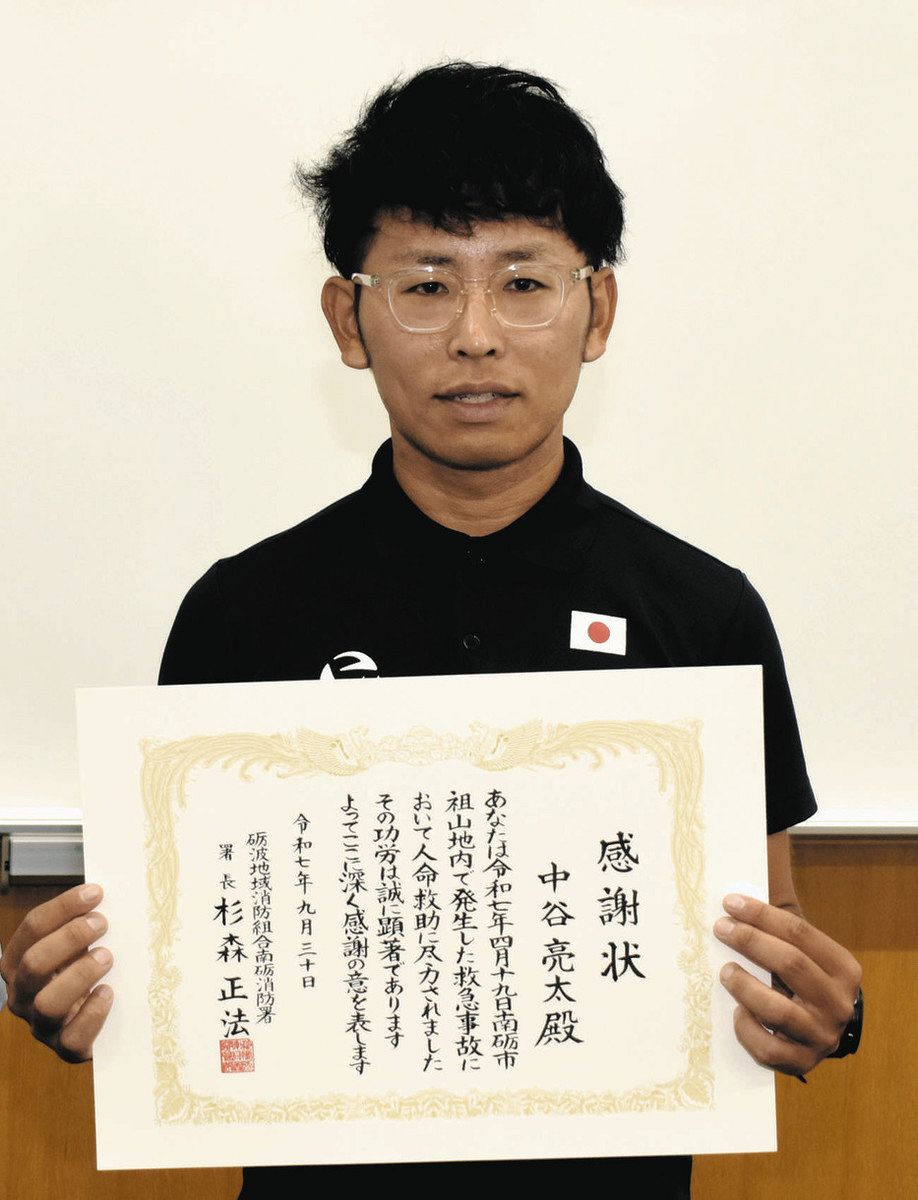 感謝状
中谷亮太殿
あなたは令和七年四月十九日南砺市
祖山地内で発生した救急事故に
おいて人命救助に尽力されました
その功労は誠に顕著であります
よってここに深く感謝の意を表します
令和七年九月三十日
砺波地域消防組合南砺消防署
署長 杉森正法